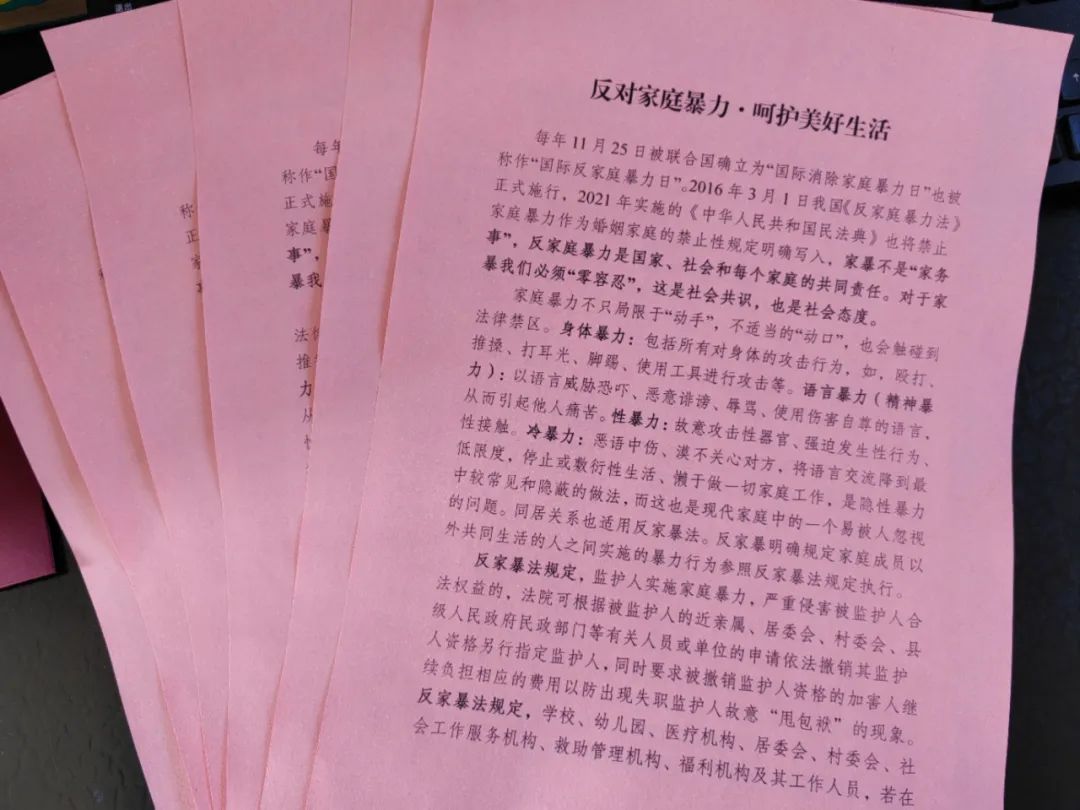 反对家庭暴力·呵护美好生活
每年11月25日被联合国确立为“国际消除家庭暴力日”也被
称作“国际反家庭暴力日”。2016年3月1日我国《反家庭暴力法》
正式施行，2021年实施的《中华人民共和国民法典》也将禁止
家庭暴力作为婚姻家庭的禁止性规定明确写入，家暴不是“家务
事”，反家庭暴力是国家、社会和每个家庭的共同责任。对于家
暴我们必须“零容忍”，这是社会共识，也是社会态度。
家庭暴力不只局限于“动手”，不适当的“动口”，也会触碰到
法律禁区。身体暴力：包括所有对身体的攻击行为，如，殴打、
推搡、打耳光、脚踢、使用工具进行攻击等。语言暴力（精神暴
力）：以语言威胁恐吓、恶意诽谤、辱骂、使用伤害自尊的语言，
从而引起他人痛苦。性暴力：故意攻击性器官、强迫发生性行为、
性接触。冷暴力：恶语中伤、漠不关心对方，将语言交流降到最
低限度，停止或敷衍性生活、懒于做一切家庭工作，是隐性暴力
中较常见和隐蔽的做法，而这也是现代家庭中的一个易被人忽视
的问题。同居关系也适用反家暴法。反家暴明确规定家庭成员以
外共同生活的人之间实施的暴力行为参照反家暴法规定执行。
反家暴法规定，监护人实施家庭暴力，严重侵害被监护人合
法权益的，法院可根据被监护人的近亲属、居委会、村委会、县
级人民政府民政部门等有关人员或单位的申请依法撤销其监护
人资格另行指定监护人，同时要求被撤销监护人资格的加害人继
续负担相应的费用以防出现失职监护人故意“甩包袱”的现象。
反家暴法规定，学校、幼儿园、医疗机构、居委会、村委会、社
会工作服务机构、救助管理机构、福利机构及其工作人员，若在
每年
称作“国
正式施
家庭暴
事”，
暴我们
法律
推
力
从
称
正
家
事